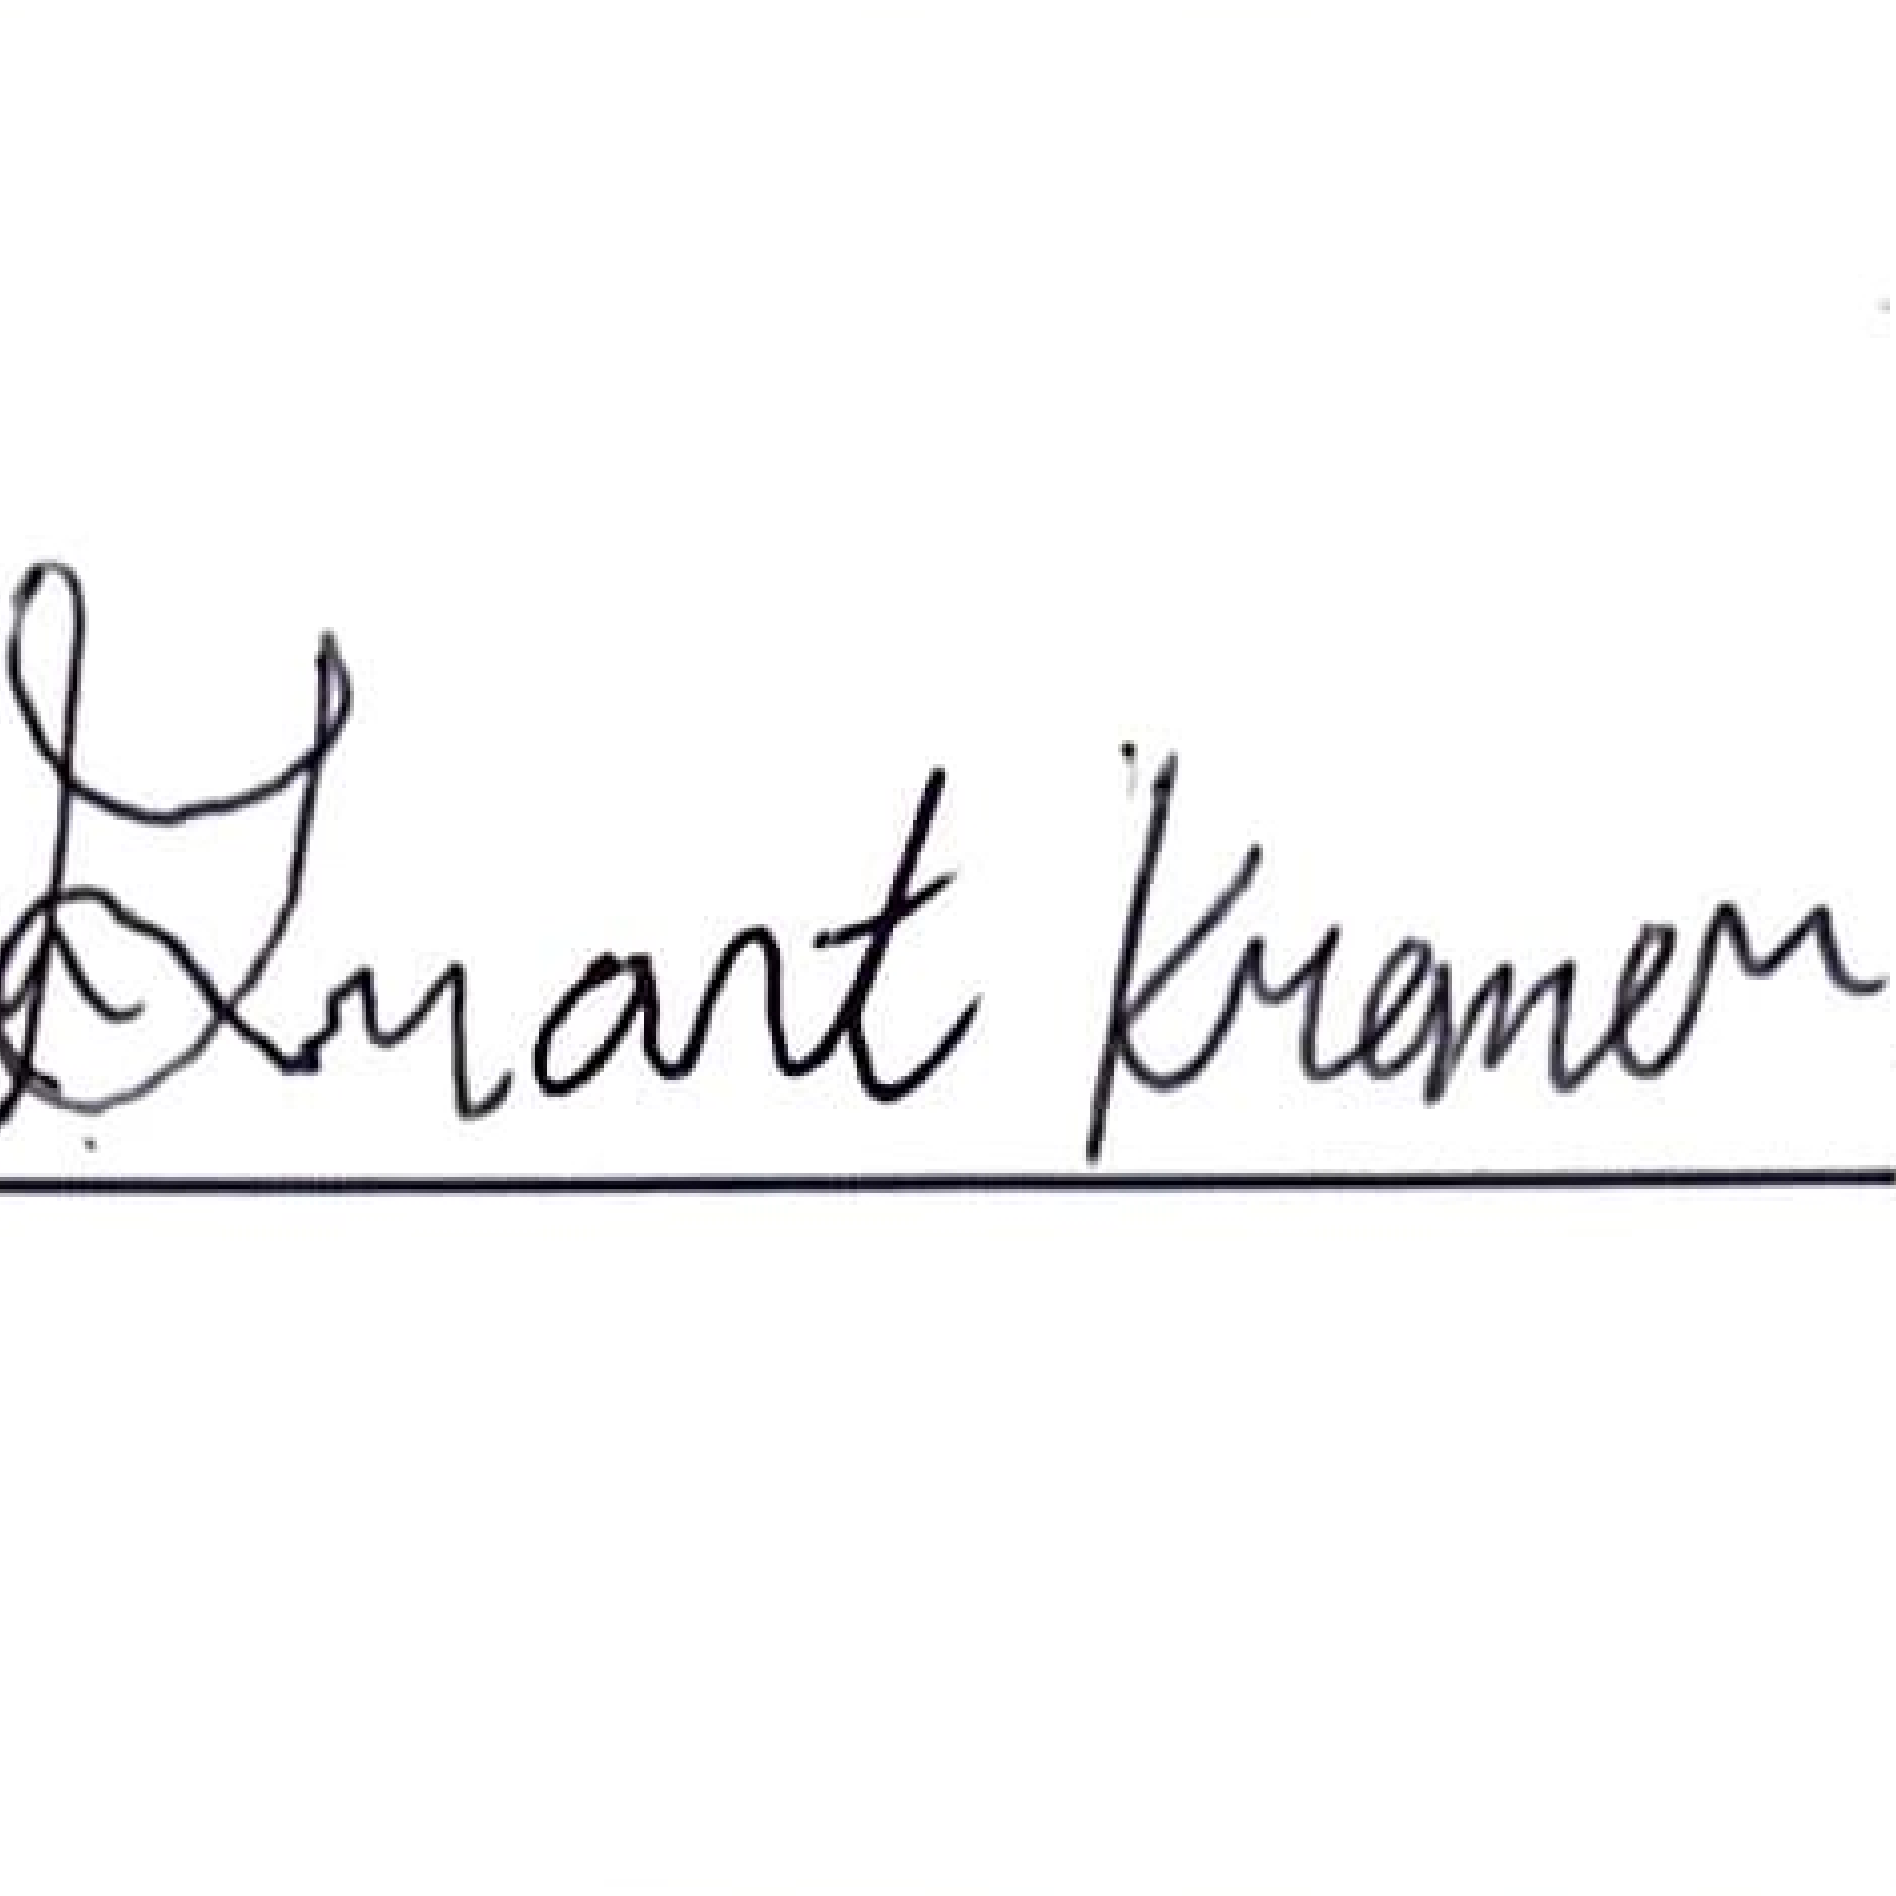 Grant Kremer